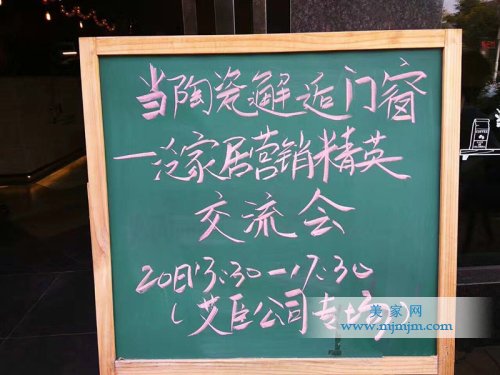 当陶瓷邂逅门窗
一泛家居营销精英
交流会
20日13:30一17:30
(艾臣公司专场)
美家网
www.mjmjm.com